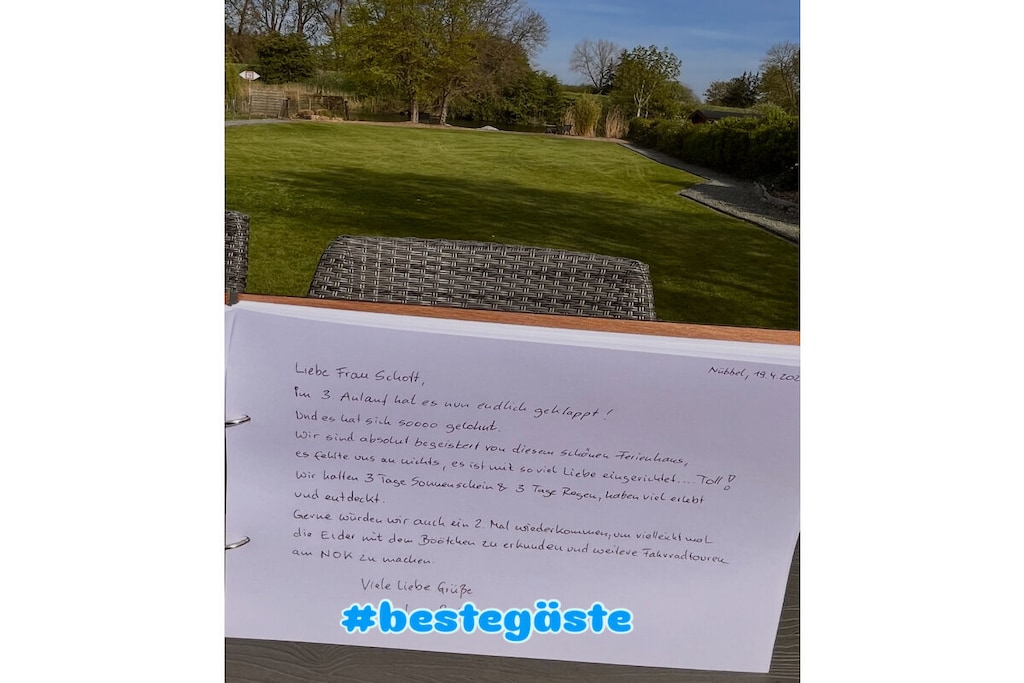 Nübbel, 19.4.202
Liebe Frau Schott,
im 3. Anlauf hat es nun endlich geklappt!
Und es hat sich soooo gelohnt.
Wir sind absolut begeistert von diesem schönen Ferienhaus,
es fehlte uns an nichts, es ist mit so viel Liebe eingerichtet.... Toll!
Wir hatten 3 Tage Sonnenschein & 3 Tage Regen, haben viel erlebt
und entdeckt.
Gerne würden wir auch ein 2. Mal wiederkommen, um vielleicht mal
die Eider mit dem Böötchen zu erkunden und weitere Fahrradtouren
am NOK zu machen.
Viele Liebe Grüße
#bestegäste